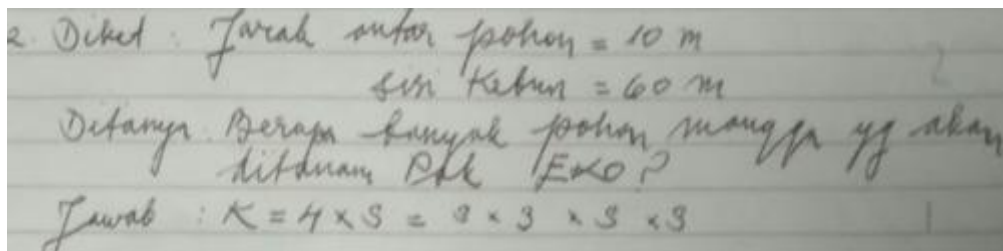 2. Diket : Jarak antar pohon = 10 m
sisi Kebun = 60 m 2
Ditanya Berapa banyak pohon mangga yg akan
ditanam Pak EKO?
Jawab : K = 4 x S = S x S x S x S 1